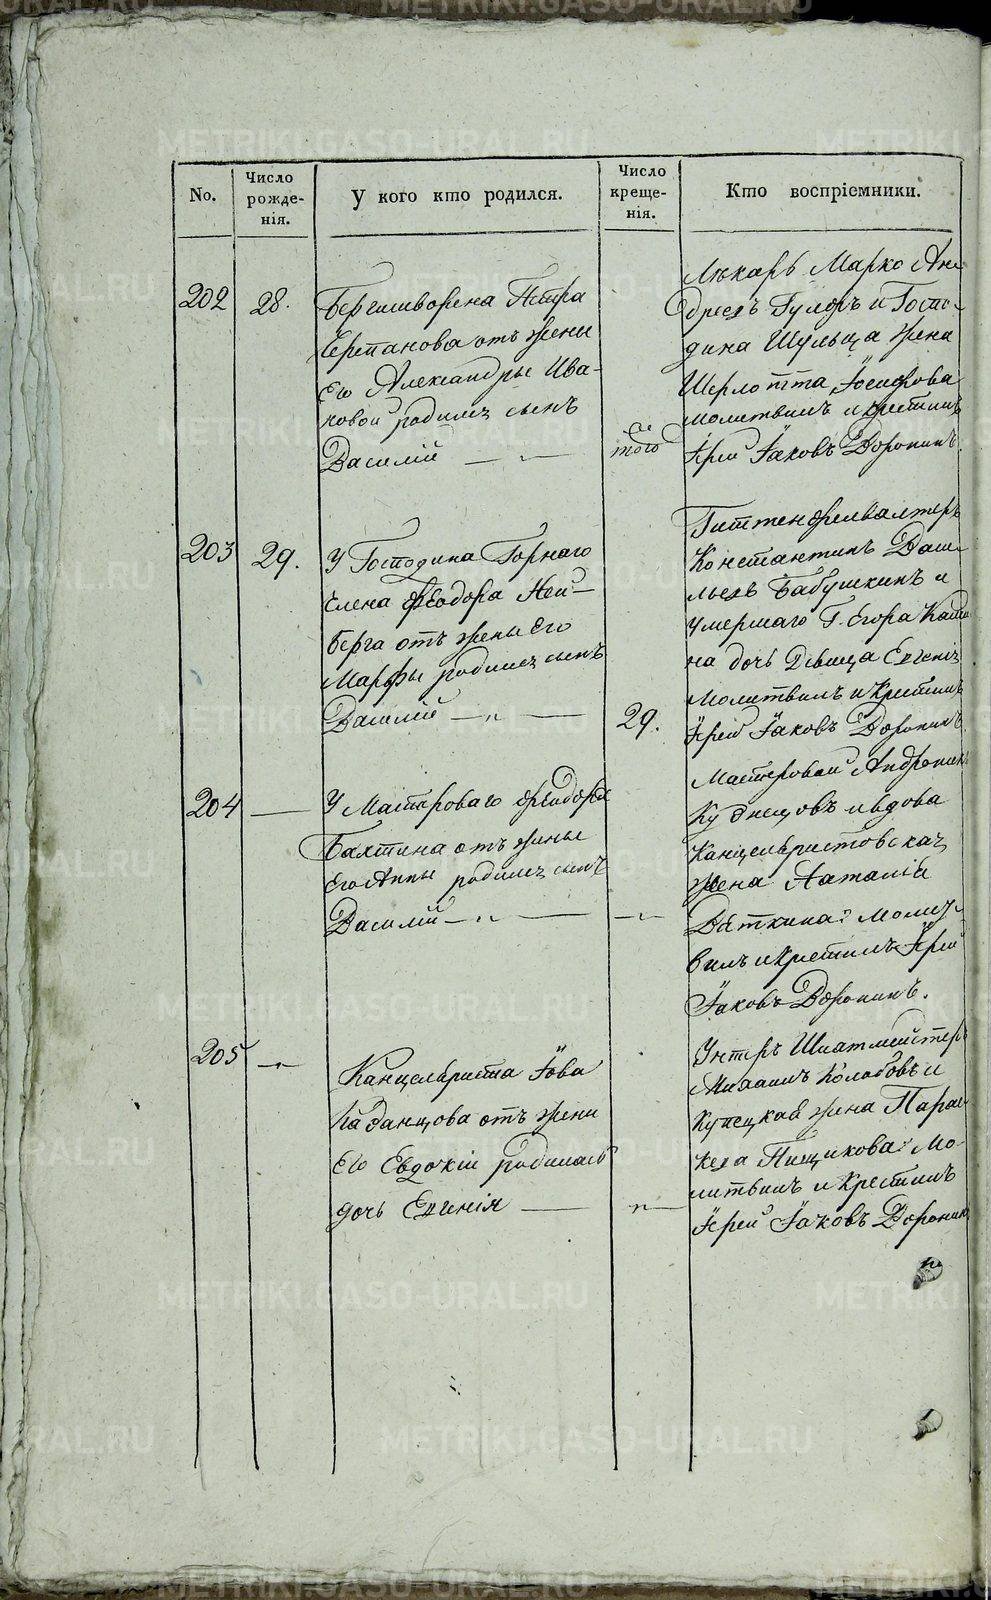 No.
Число рожде-нія.
У кого кто родился.
Число креще-нія.
Кто воспріемники.
202
28.
Бергшворена Петра
Черепанова отъ жены
Его Александры Ива-
новой родился сынъ
Василій — „ —
того
Лѣкарь Марко Ан-
дреевъ и Госпо-
дина Шульца жена
Шерлотта Іосифова
молитвилъ и крестилъ
Іерей Іаковъ Доронинъ.
203
29.
У Господина Горнаго
Члена Феодора Ней-
берга отъ жены Его
Марфы родился сынъ
Василій — „ —
29.
Гиттенфервалтеръ
Константинъ Васи-
льевъ Бабушкинъ и
умершаго Г. Егора
на дочь Дѣвица Евгенія
Молитвилъ и Крестилъ
Іерей Іаковъ Доронинъ
204
—
У Мастероваго Феодора
Бахтина отъ жены
Его Анны родился сынъ
Василій — „ —
— „ —
Мастеровой Андроникъ
Кузнецовъ и вдова
Канцеляристовская
жена Наталія
Вяткина: молит-
вилъ и крестилъ Іерей
Іаковъ Доронинъ.
205
— „ —
Канцеляриста Іова
Казанцова отъ жены
Его Евдокіи родилась
дочь Евгенія —
— „ —
Унтеръ Шихтмейстеръ
Михаилъ Колобовъ и
Купецкая жена Парас-
кева Пищикова: Мо-
литвилъ и Крестилъ
Іерей Іаковъ Доронинъ
METRIKI.GASO-URAL.RU